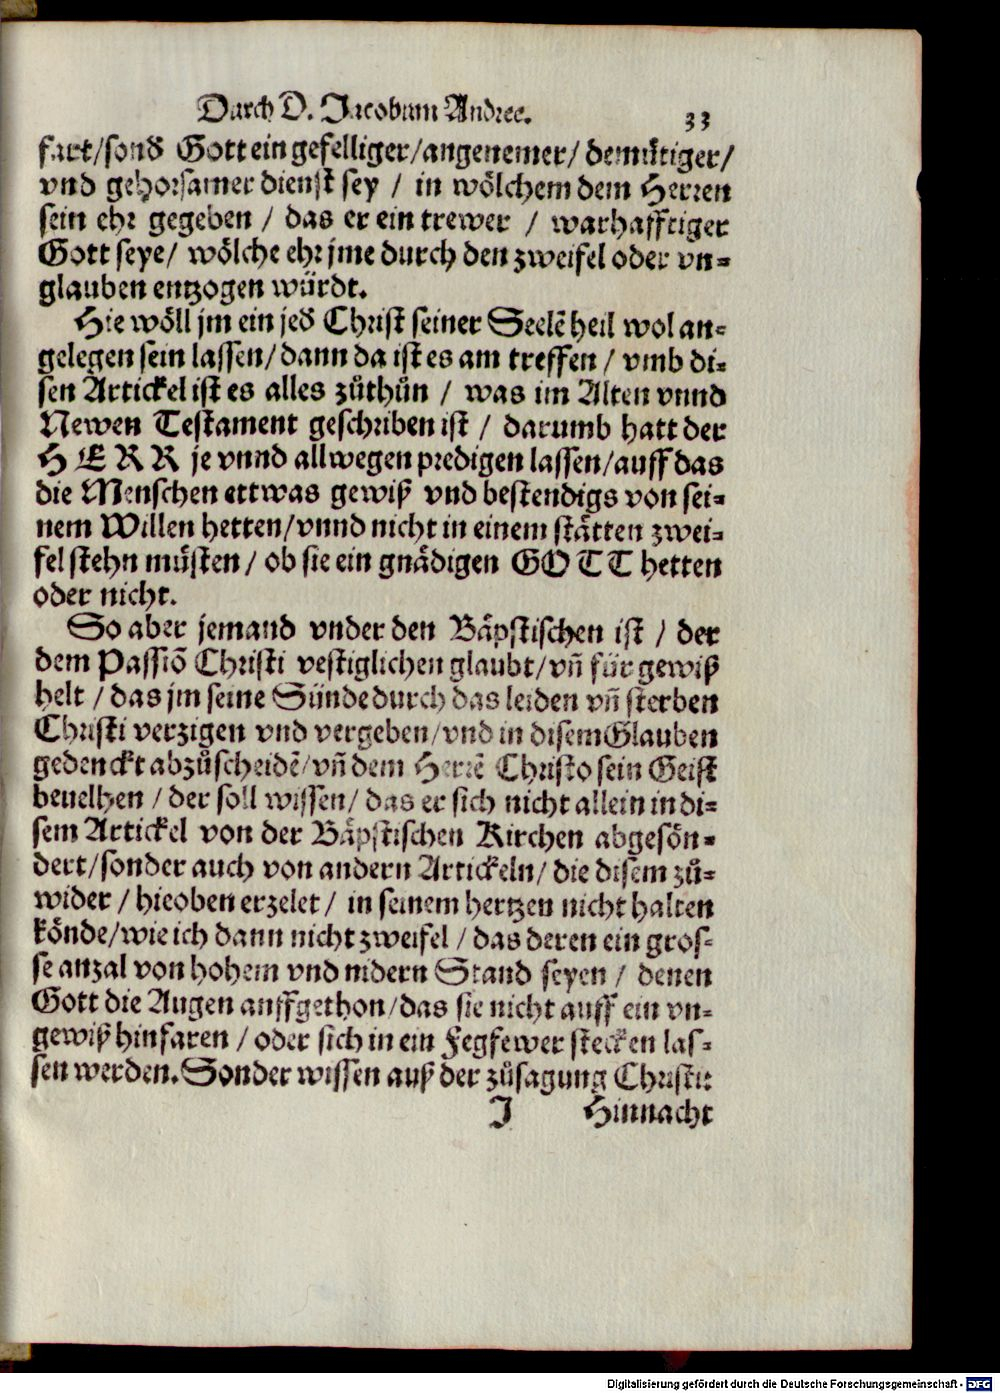 Durch D. Jacobum Andree. 33
fart/sond̃ Gott ein gefelliger/angenemer/ demütiger/
vnd gehorsamer dienst sey / in wölchem dem Herren
sein ehr gegeben / das er ein trewer / warhafftiger
Gott seye/ wölche ehr jme durch den zweifel oder vn-
glauben entzogen würdt.
Hie wöll jm ein jed̃ Christ seiner Seelẽ heil wol an-
gelegen sein lassen/dann da ist es am treffen / vmb di-
sen Artickel ist es alles zůthůn / was im Alten vnnd
Newen Testament geschriben ist / darumb hatt der
HERR je vnnd allwegen predigen lassen/auff das
die Menschen ettwas gewiß vnd bestendigs von sei-
nem Willen hetten/vnnd nicht in einem stätten zwei-
fel stehn müsten / ob sie ein gnädigen GOTT hetten
oder nicht.
So aber jemand vnder den Bäpstischen ist / der
dem Passiõ Christi vestiglichen glaubt/vñ für gewiß
helt / das jm seine Sünde durch das leiden vñ sterben
Christi verzigen vnd vergeben/vnd in disem Glauben
gedenckt abzůscheidẽ/vñ dem Herrẽ Christo sein Geist
beuelhen / der soll wissen/ das er sich nicht allein in di-
sem Artickel von der Bäpstischen Kirchen abgesön-
dert/sonder auch von andern Artickeln/ die disem zů-
wider / hieoben erzelet / in seinem hertzen nicht halten
könde/wie ich dann nicht zweifel / das deren ein gros-
se anzal von hohem vnd nidern Stand seyen / denen
Gott die Augen auffgethon/das sie nicht auff ein vn-
gewiß hinfaren / oder sich in ein Fegfewer stecken las-
sen werden. Sonder wissen auß der zůsagung Christi:
J Hinnacht
Digitalisierung gefördert durch die Deutsche Forschungsgemeinschaft - DFG